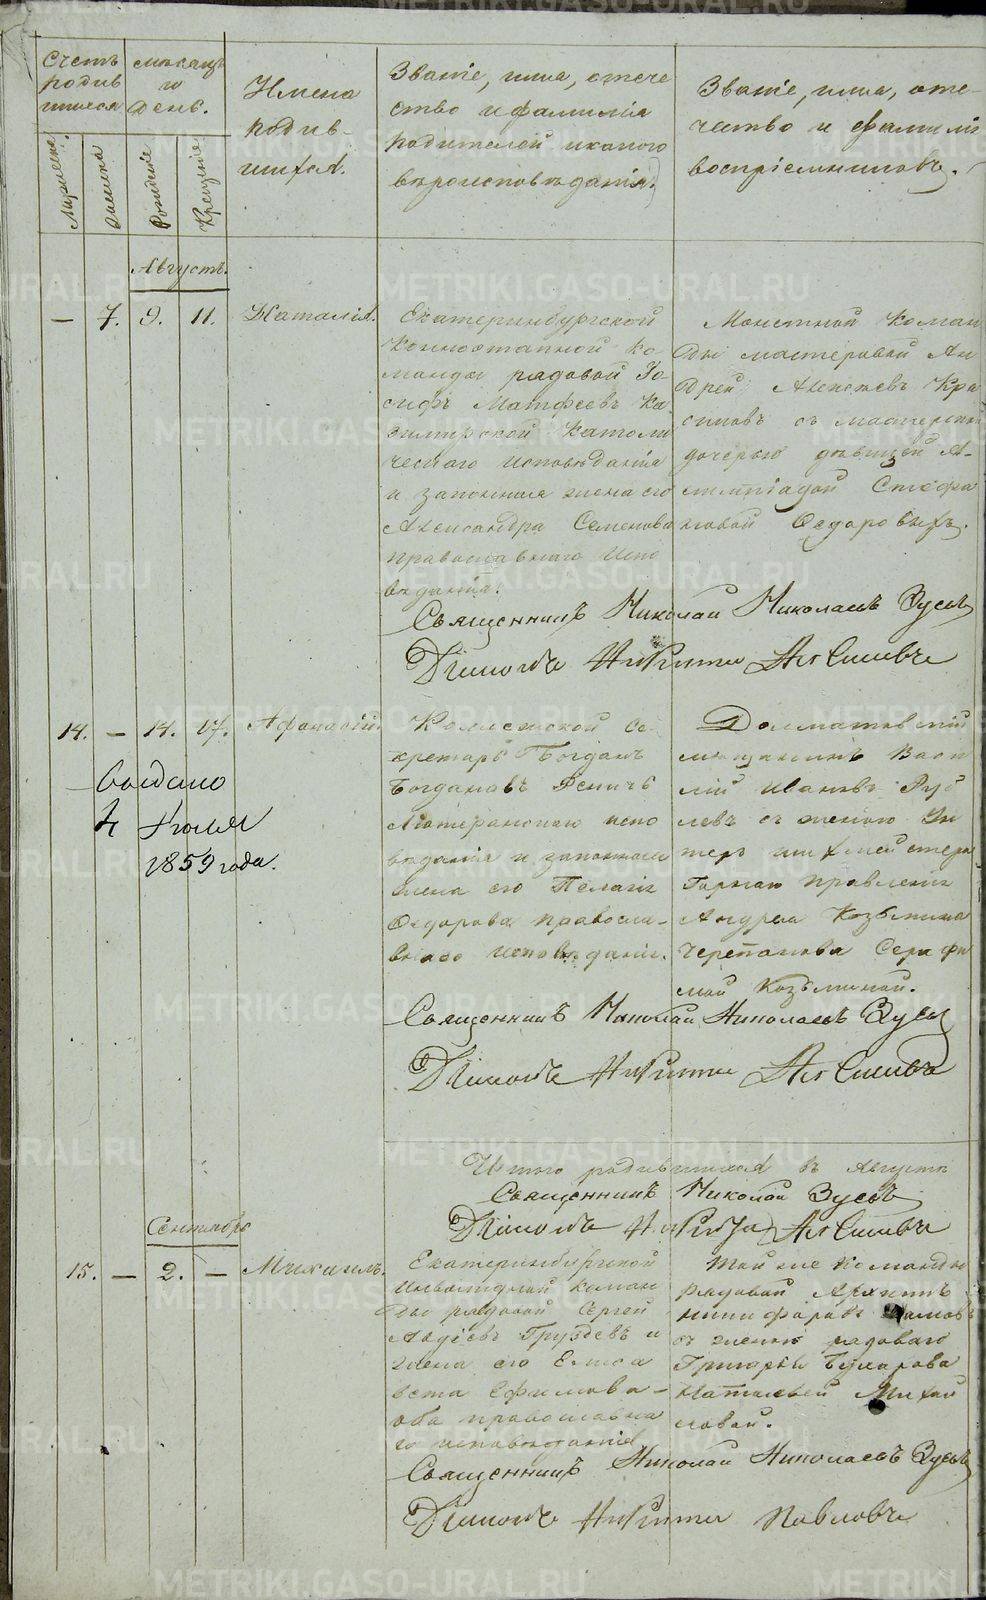 Счетъ родив шихся
мѣсяцъ и день.
Имена родив- шихся.
Званіе, имя, отече
ство и фамилія
родителей и какого
вѣроисповѣданія.
Званіе, имя, оте-
чество и фамилія
воспріемниковъ.
Рожденіе
Крещеніе
Августъ.
— 7. 9. 11. Наталія.
Екатеринбургской
Конноэтапной ко
манды рядовой Іо
сифъ Матфеевъ Ка
зимирской Католи
ческаго исповѣданія
и законная жена его
Александра Семенова
православнаго испо
вѣданія.
Монетной коман
ды мастеровой Ан
дрей Алексѣевъ Кра
съ мастерской
дочерью дѣвицей
Стефа
новой Ѳедоровыхъ.
Священникъ Николай Николаевъ Зуевъ
Діаконъ Никита
14. — 14. 17. Афанасій.
выдано
4 Іюля
1859 года.
Коллежской Се
кретарь Богданъ
Богдановъ
Лютеранскаго испо
вѣданія и законная
жена его Пелагія
Ѳедорова православ
наго исповѣданія.
Долматовскій
мѣщанинъ Васи
лій Ивановъ Руб
левъ съ женою Ун
теръ шихмейстера
Горнаго правленія
Козьмина
Черепанова Серафи
мой Козьминой.
Священникъ Николай Николаевъ Зуевъ
Діаконъ Никита
Итого родившихся въ Августѣ
Священникъ Николай Зуевъ
Діаконъ Никита
Сентябрь
15. — 2. — Михаилъ.
Екатеринбургской
инвалидной коман
ды рядовой Сергей
Авдѣевъ Груздевъ и
жена его Елиса
вета Ефимова —
оба православна
го исповѣданія
Той же команды
рядовой Архипъ
Никифоровъ
съ женою рядоваго
Григорья
Натальей Михай
ловой.
Священникъ Николай Николаевъ Зуевъ
Діаконъ Никита Павловъ
METRIKI.GASO-URAL.RU